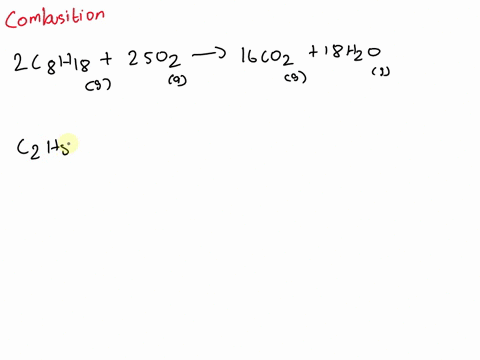 Combusition
2C8H18 (g) + 25O2 (g) → 16CO2 (g) + 18H2O (g)
C2H5